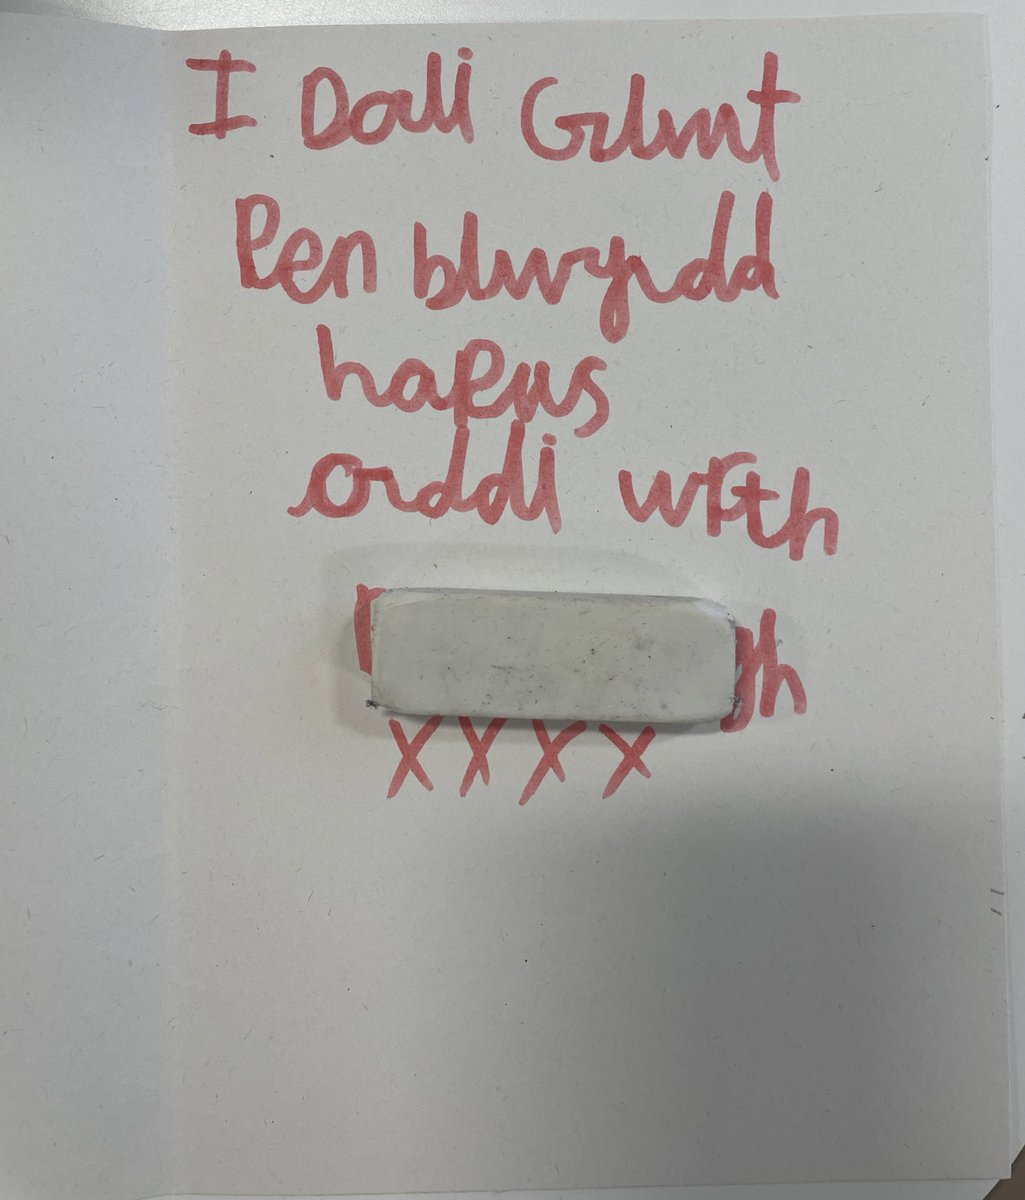 I Dali Grunt
Pen blwyrdd
hapus
orddi wrth
xxxx